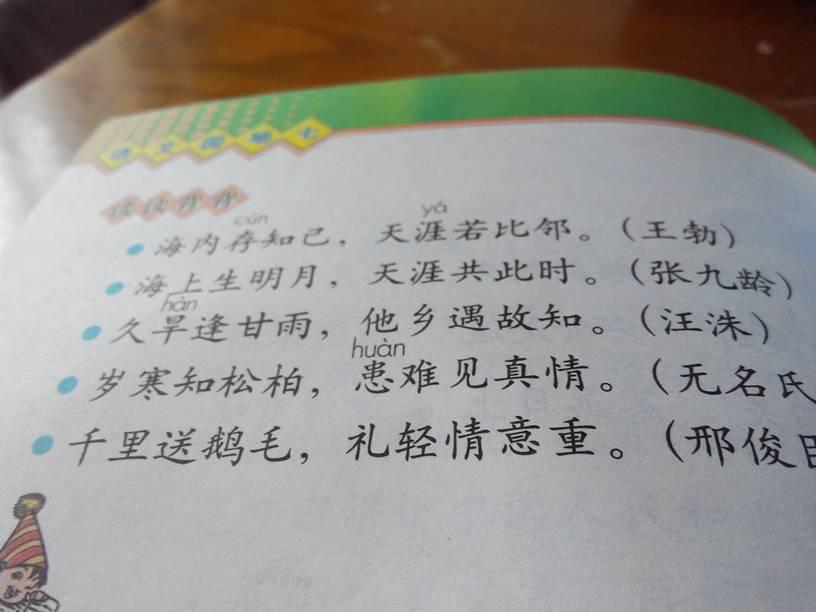 语文园地七
读读背背
cún yá
海内存知己，天涯若比邻。（王勃）
海上生明月，天涯共此时。（张九龄）
hàn
久旱逢甘雨，他乡遇故知。（汪洙）
huàn
岁寒知松柏，患难见真情。（无名氏
千里送鹅毛，礼轻情意重。（邢俊臣